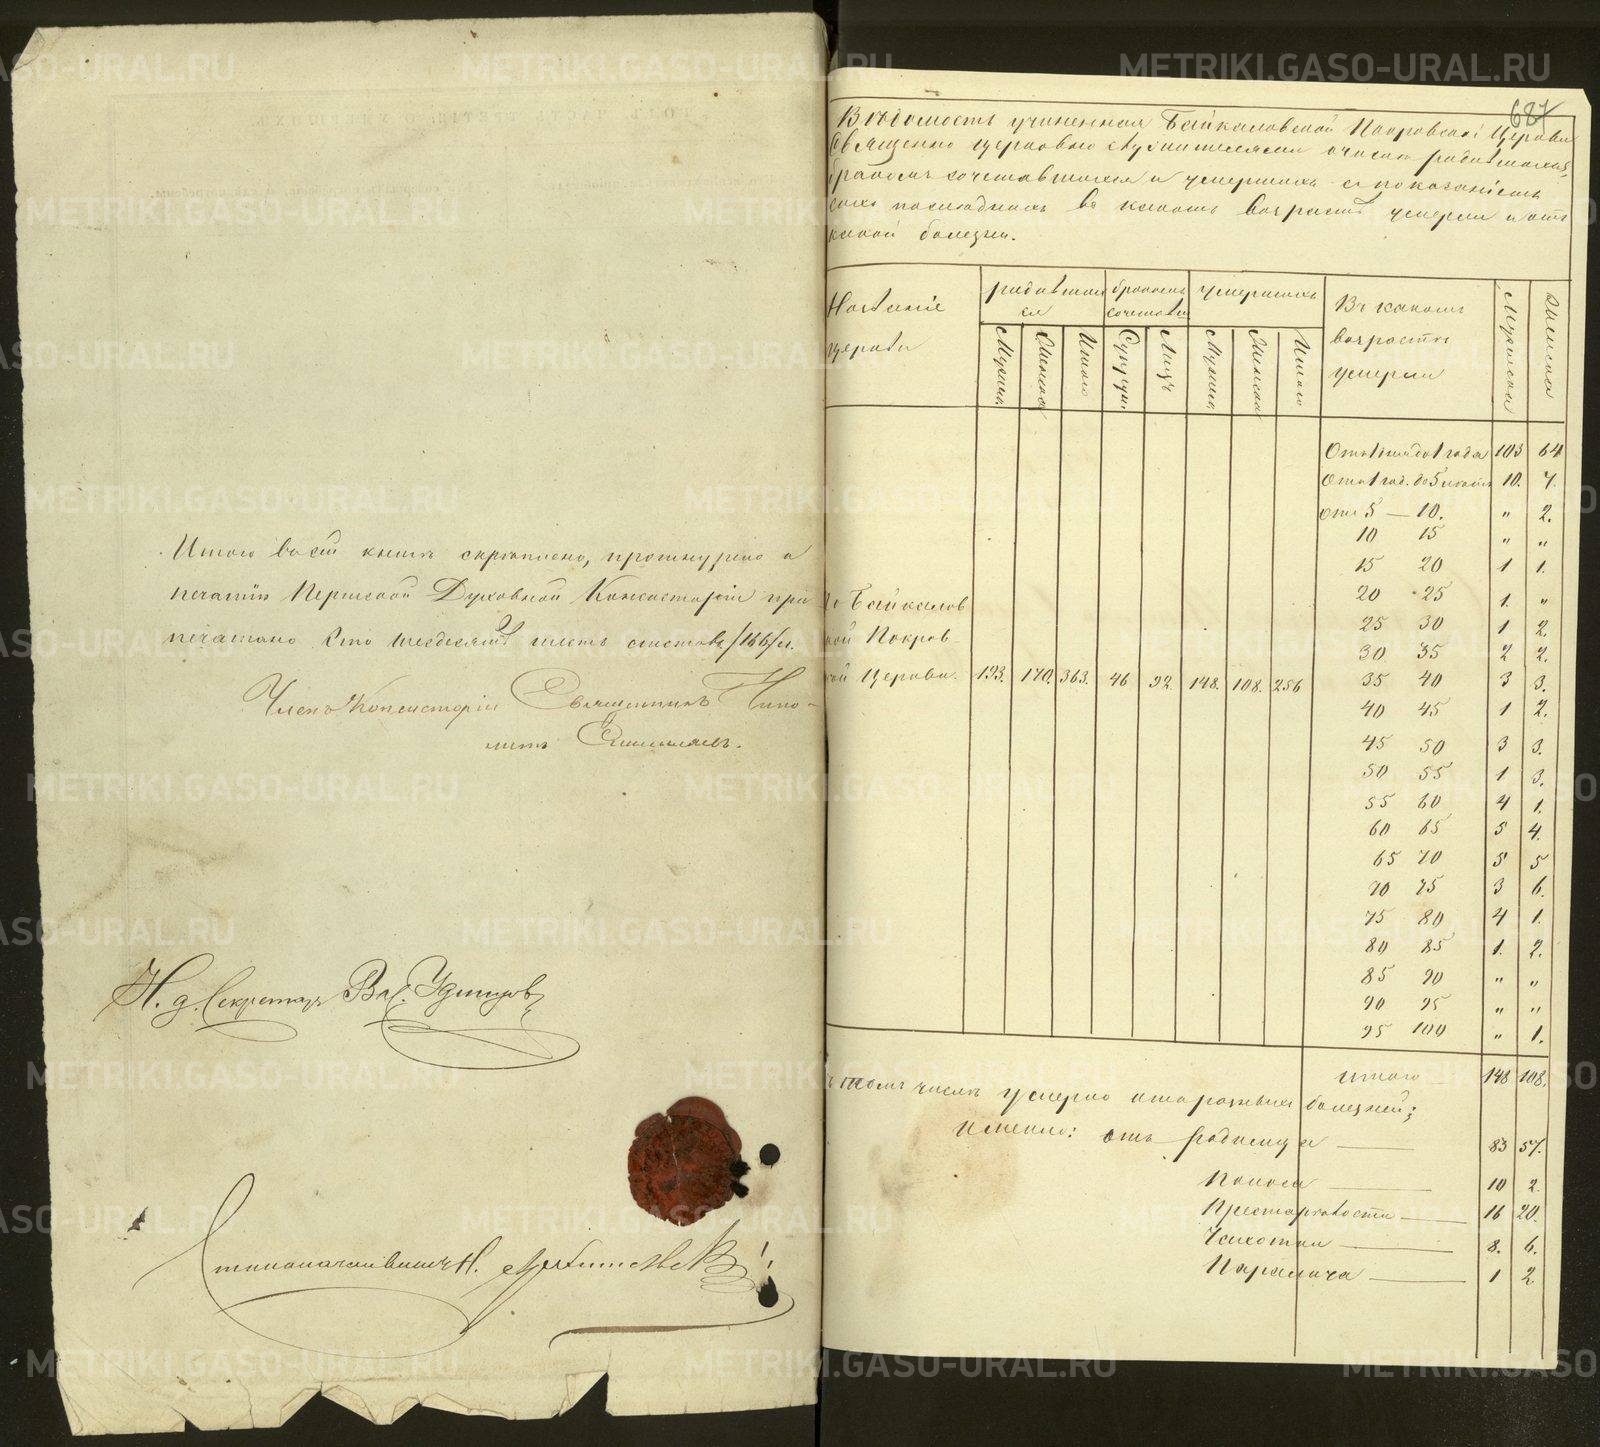 Итого въ сей книгѣ скрѣплено, прошнуровано и
печатію Пермской Духовной Консисторіи при
печатано сто шесдесятъ шесть листовъ /166/ л.
Членъ Консисторіи Священникъ Иппо-
литъ
И. д. Секретаря Вл. Удинцов
Столоначальникъ Н.
687
Вѣдомость учиненная Байкаловской Покровской Церкви
Священно церковно служителями о числѣ родившихся,
бракомъ сочетавшихся и умершихъ съ показаніемъ
сихъ послѣднихъ въ какомъ возрастѣ умерли и отъ
какой болезни.
Названіе церкви
родившихся
бракомъ сочетавш
умершихъ
Въ какомъ возростѣ умерли
Мужеска
Женска
Мужеск.
Женска
Итого
Супруж.
Лицъ
Мужеск.
Женска
Итого
Байкалов
ской Покров-
ской Церкви. 193. 170. 363. 46 92. 148. 108. 256
От 1 дня до 1 года 103 64
Отъ 1 год. до 5 лѣтъ 10. 7.
отъ 5 — 10. " 2.
10 15 " "
15 20 1 1.
20 25 1. "
25 30 1 2.
30 35 2 2.
35 40 3 3.
40 45 1 2.
45 50 3 3.
50 55 1 3.
55 60 4 1.
60 65 5 4.
65 70 5 5
70 75 3 6.
75 80 4 1.
80 85 1. 2.
85 90 " "
90 95 " "
95 100 " 1.
итого 148 108.
томъ числѣ умерло отъ разныхъ болезней;
Именно: отъ родимца — 83 57.
Поноса — 10 2
Престарѣлости — 16 20.
Чахотки — 8. 6.
Паралича — 1 2
METRIKI.GASO-URAL.RU